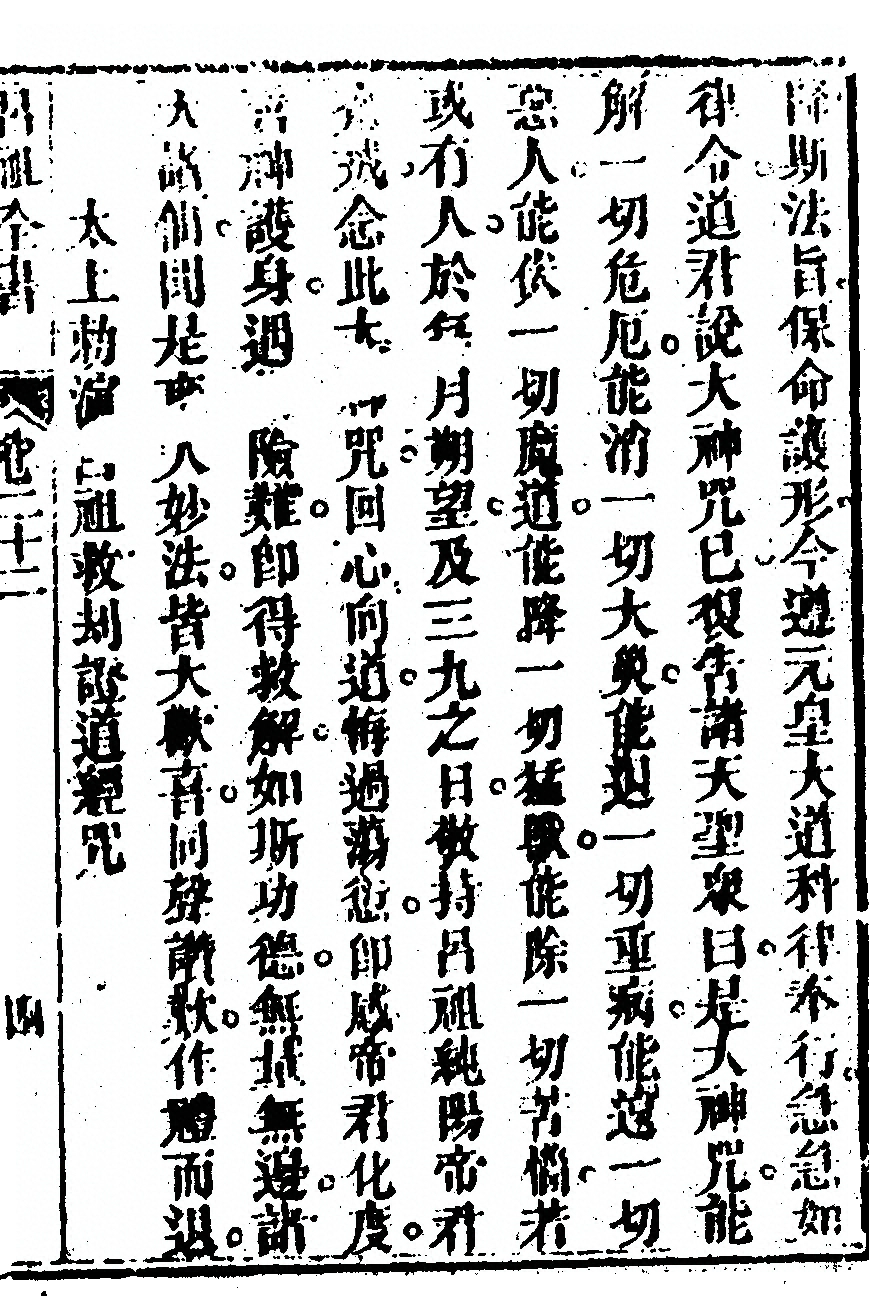 降斯法旨保命護形今遵元皇大道科律奉行急急如
律令道君說大神咒已復告諸天聖衆曰是大神咒能
解一切危厄能消一切大災能退一切重病能遠一切
惡人能伏一切魔道能降一切猛獸能除一切苦惱若
或有人於每月朔望及三九之日敬持呂祖純陽帝君
誡念此大神咒回心向道悔過蕩愆即感帝君化度
善神護身遇險難即得救解如斯功德無量無邊諸
大諸仙聞是妙法皆大歡喜同聲讚歎作禮而退
太上勅演呂祖救刦證道經咒
呂祖全書 卷二十二 四